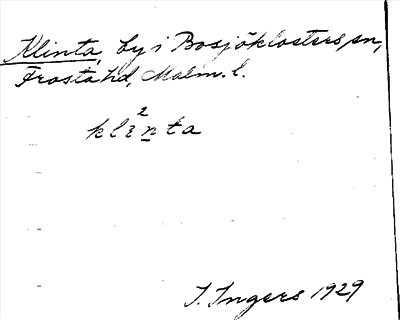 Klinta, by i Bosjöklosters sn,
Frosta hd, Malm. l.
2
klinta
I. Ingers 1929